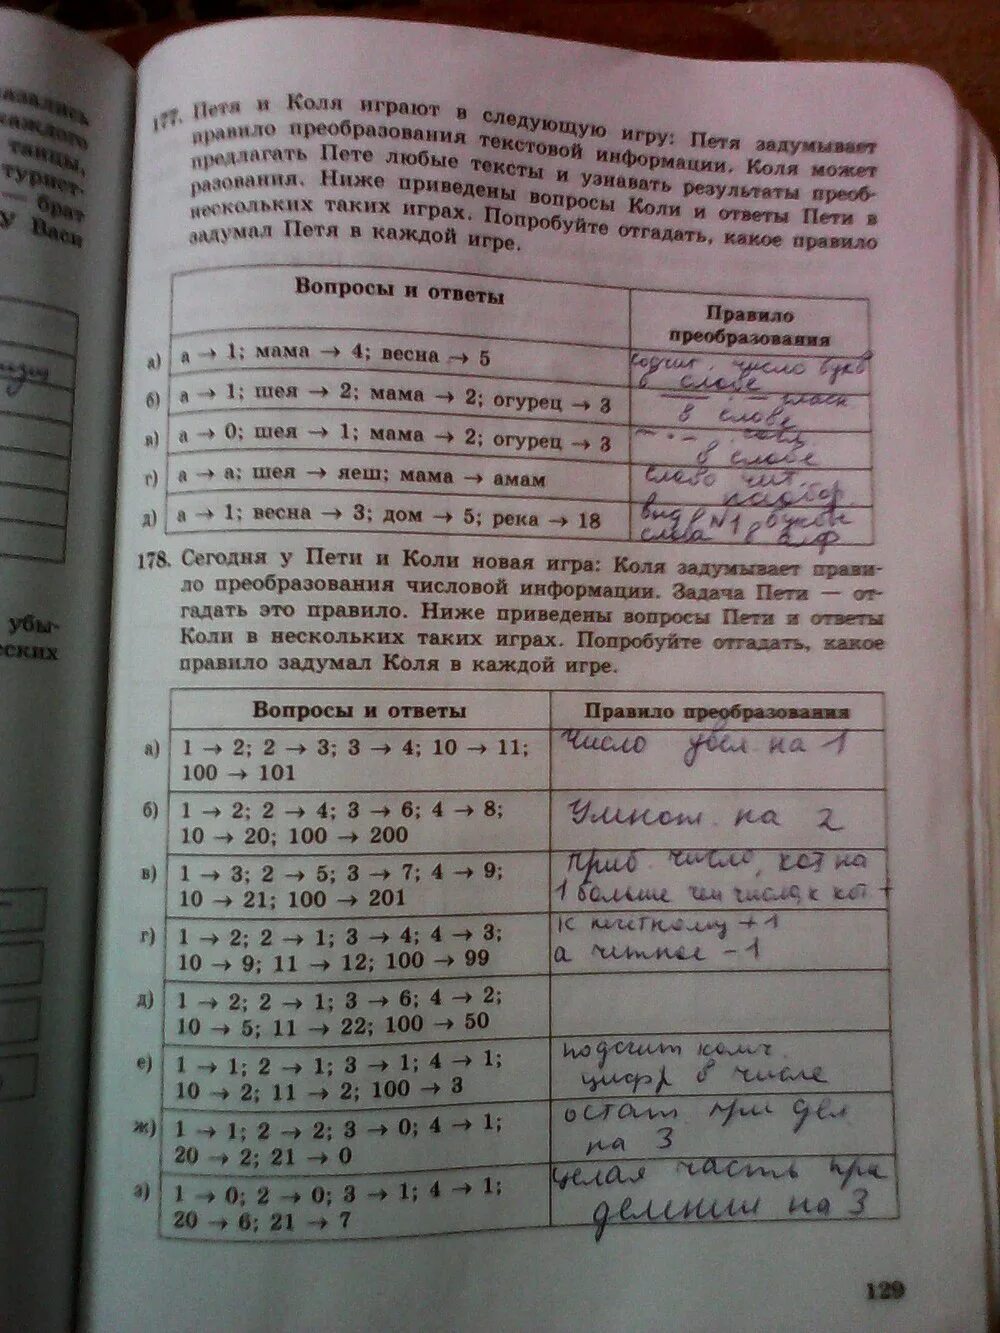 азались
каждого
танцы,
турист-
— брат
у Васи
убы-
еских
177. Петя и Коля играют в следующую игру: Петя задумывает
правило преобразования текстовой информации. Коля может
предлагать Пете любые тексты и узнавать результаты преоб-
разования. Ниже приведены вопросы Коли и ответы Пети в
нескольких таких играх. Попробуйте отгадать, какое правило
задумал Петя в каждой игре.
Вопросы и ответы
Правило
преобразования
а) а → 1; мама → 4; весна → 5
число букв
в слове
б) а → 1; шея → 2; мама → 2; огурец → 3
гласн.
в слове
в) а → 0; шея → 1; мама → 2; огурец → 3
в слове
г) а → а; шея → яеш; мама → амам
слово чит.
наобор.
д) а → 1; весна → 3; дом → 5; река → 18
№1 буквы
слова в алф
178. Сегодня у Пети и Коли новая игра: Коля задумывает прави-
ло преобразования числовой информации. Задача Пети — от-
гадать это правило. Ниже приведены вопросы Пети и ответы
Коли в нескольких таких играх. Попробуйте отгадать, какое
правило задумал Коля в каждой игре.
Вопросы и ответы
Правило преобразования
а) 1 → 2; 2 → 3; 3 → 4; 10 → 11;
100 → 101
Число увел. на 1
б) 1 → 2; 2 → 4; 3 → 6; 4 → 8;
10 → 20; 100 → 200
Умнож. на 2
в) 1 → 3; 2 → 5; 3 → 7; 4 → 9;
10 → 21; 100 → 201
Приб. число, кот на
1 больше чем число, к кот +
г) 1 → 2; 2 → 1; 3 → 4; 4 → 3;
10 → 9; 11 → 12; 100 → 99
к нечетному +1
а четное -1
д) 1 → 2; 2 → 1; 3 → 6; 4 → 2;
10 → 5; 11 → 22; 100 → 50
е) 1 → 1; 2 → 1; 3 → 1; 4 → 1;
10 → 2; 11 → 2; 100 → 3
подсчит колич.
цифр в числе
ж) 1 → 1; 2 → 2; 3 → 0; 4 → 1;
20 → 2; 21 → 0
остат при дел
на 3
з) 1 → 0; 2 → 0; 3 → 1; 4 → 1;
20 → 6; 21 → 7
целая часть при
делении на 3
129